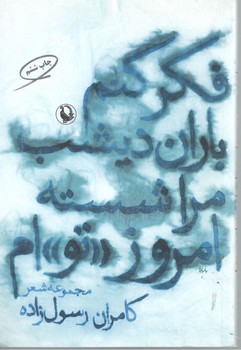 چاپ ششم
فکر کنم
باران دیشب
مرا شسته
امروز «تو»ام
مجموعه شعر
کامران رسول‌زاده